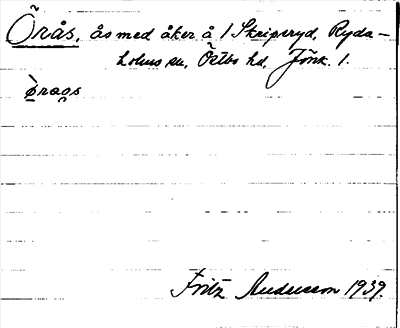 Örås, ås med åker å 1 Skripsryd, Ryda-
holms sn, Östbo hd, Jönk. l.
öraos
Fritz Andersson 1939.